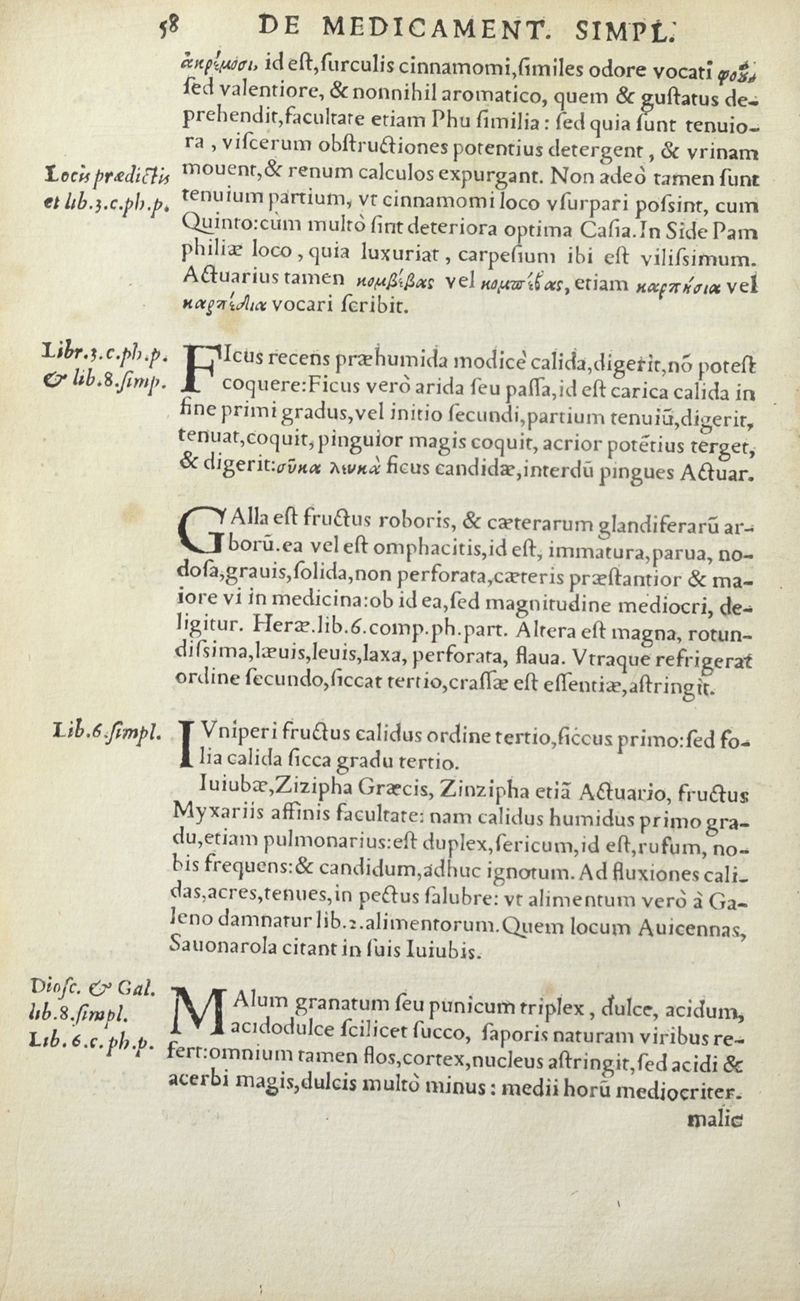 58 DE MEDICAMENT. SIMPL.
id eſt, ſurculis cinnamomi, ſimiles odore vocati
ſed valentiore, & nonnihil aromatico, quem & guſtatus de-
prehendit, facultate etiam Phu ſimilia: ſed quia ſunt tenuio-
ra, viſcerum obſtructiones potentius detergent, & vrinam
Locis prædictis
mouent, & renum calculos expurgant. Non adeò tamen ſunt
et lib.3.c.ph.p.
tenuium partium, vt cinnamomi loco vſurpari poſsint, cum
Quinto: cùm multò ſint deteriora optima Caſia. In Side Pam
philiæ loco, quia luxuriat, carpeſium ibi eſt viliſsimum.
Actuarius tamen κομβέβας vel etiam καρπήσια vel
καρπίδια vocari ſcribit.
Libr.3.c.ph.p.
FIcus recens præhumida modicè calida, digerit, nõ poteſt
& lib.8.ſimp.
coquere: Ficus verò arida ſeu paſſa, id eſt carica calida in
fine primi gradus, vel initio ſecundi, partium tenuiũ, digerit,
tenuat, coquit, pinguior magis coquit, acrior potẽtius terget,
& digerit: σῦκα λευκὰ ficus candidæ, interdũ pingues Actuar.
GAlla eſt fructus roboris, & cæterarum glandiferarũ ar-
borũ. ea vel eſt omphacitis, id eſt, immatura, parua, no-
doſa, grauis, ſolida, non perforata, cæteris præſtantior & ma-
iore vi in medicina: ob id ea, ſed magnitudine mediocri, de-
ligitur. Heræ. lib.6.comp.ph.part. Altera eſt magna, rotun-
diſsima, læuis, leuis, laxa, perforata, flaua. Vtraque refrigerat
ordine ſecundo, ſiccat tertio, craſſæ eſt eſſentiæ, aſtringit.
Lib.6.ſimpl.
IVniperi fructus calidus ordine tertio, ſiccus primo: ſed fo-
lia calida ſicca gradu tertio.
Iuiubæ, Zizipha Græcis, Zinzipha etiã Actuario, fructus
Myxariis affinis facultate: nam calidus humidus primo gra-
du, etiam pulmonarius: eſt duplex, ſericum, id eſt, rufum, no-
bis frequens: & candidum, adhuc ignotum. Ad fluxiones cali-
das, acres, tenues, in pectus ſalubre: vt alimentum verò à Ga-
leno damnatur lib.2.alimentorum. Quem locum Auicennas,
Sauonarola citant in ſuis Iuiubis.
Dioſc. & Gal.
lib.8.ſimpl.
MAlum granatum ſeu punicum triplex, dulce, acidum,
Lib.6.c.ph.p.
acidodulce ſcilicet ſucco, ſaporis naturam viribus re-
fert: omnium tamen flos, cortex, nucleus aſtringit, ſed acidi &
acerbi magis, dulcis multò minus: medii horũ mediocriter.
malic